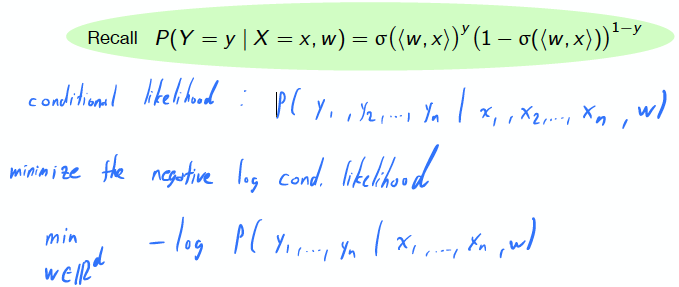 Recall P(Y = y | X = x, w) = σ(⟨w, x⟩)^y (1 − σ(⟨w, x⟩))^{1−y}
conditional likelihood : P( y₁, y₂, ..., yₙ | x₁, x₂, ..., xₙ, w)
minimize the negative log cond. likelihood
min − log P( y₁, ..., yₙ | x₁, ..., xₙ, w)
w∈ℝ^d